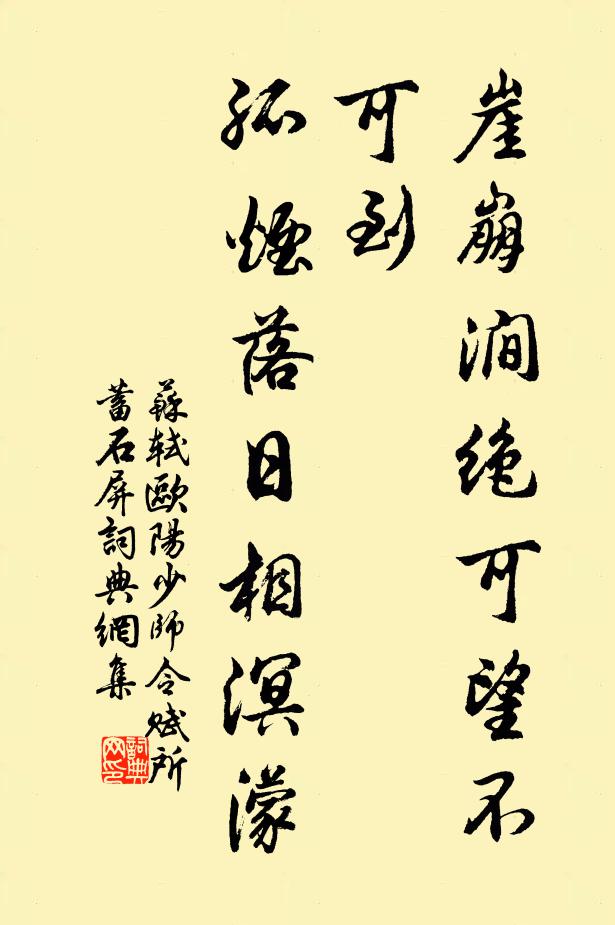 崖崩澗絶可望不
可到
孤煙落日相溟濛
蘇軾歐陽少師令賦所
蓄石屏詞典網集
詞典
网印